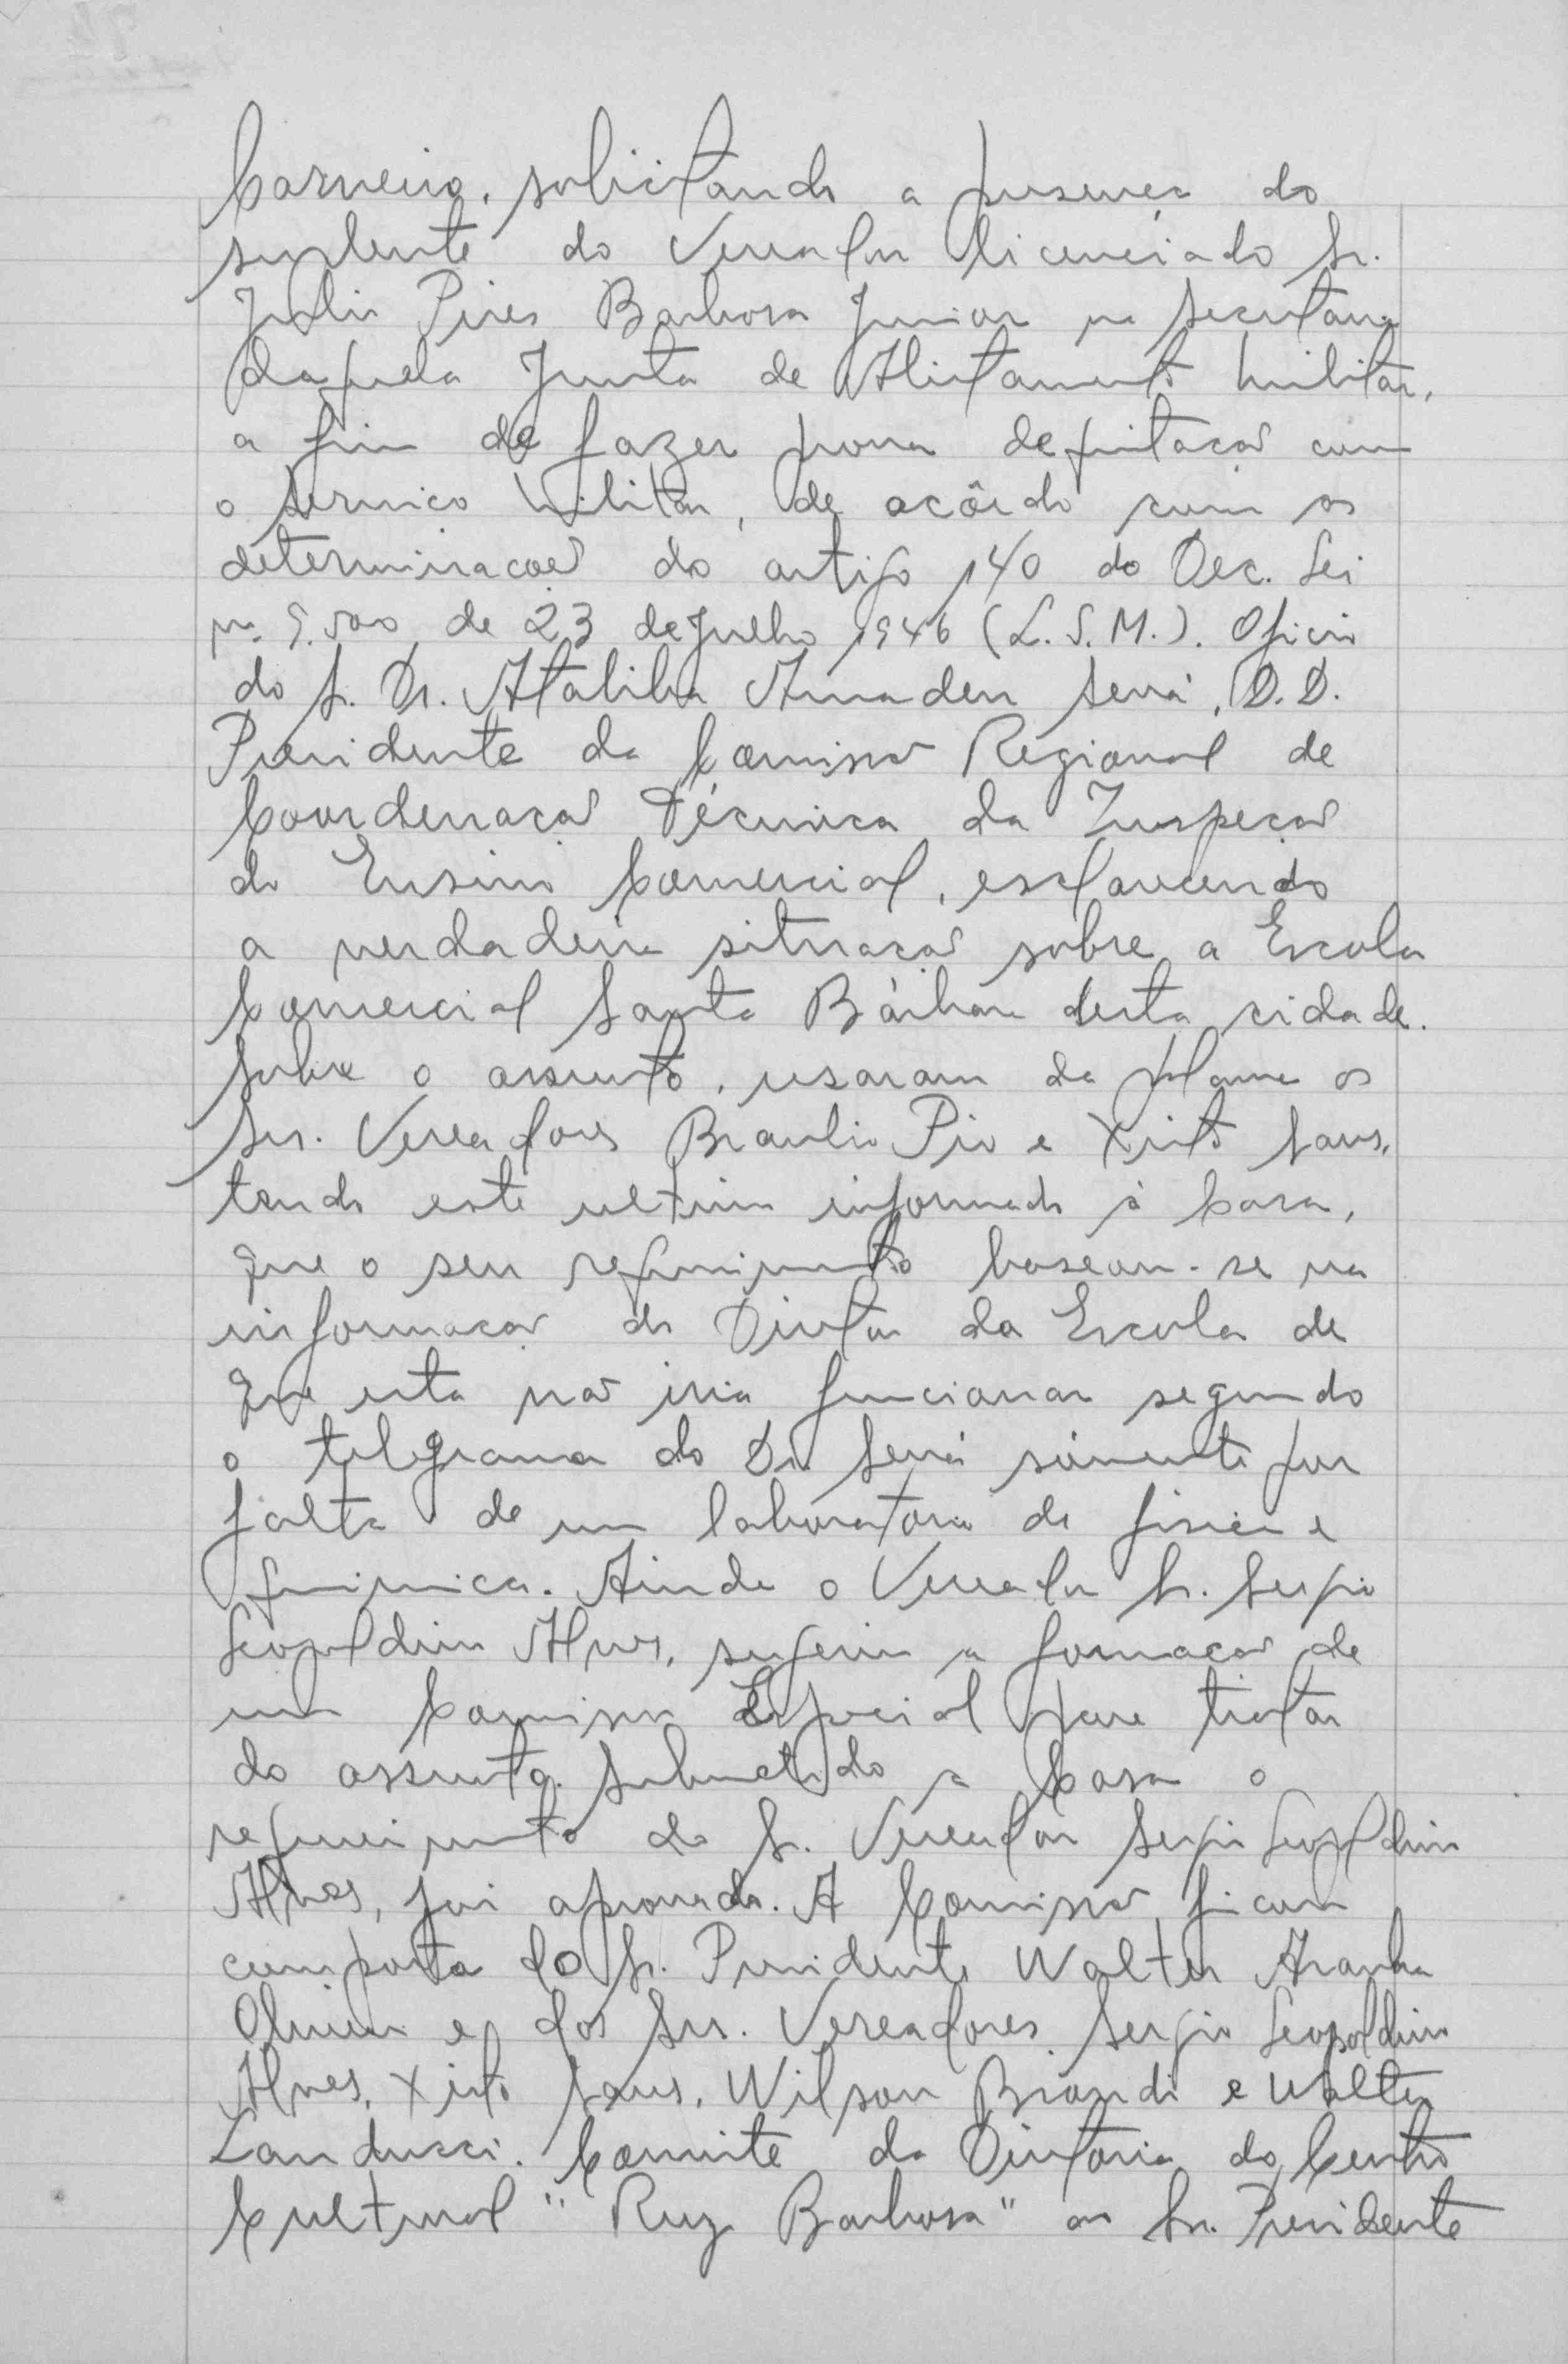 Carneiro, solicitando a presença do
suplente do Vereador licenciado Sr.
Julio Pires Barbosa Junior na Secretaria
daquela Junta de Alistamento Militar,
a fim de fazer prova de quitação com
o Serviço Militar, de acôrdo com as
determinações do artigo 140 do Dec. Lei
nº 9.500 de 23 de Julho 1946 (L.S.M.). Oficio
do S. Dr. Ataliba Amadeu Sevá, D.D.
Presidente da Comissão Regional de
Coordenação Técnica da Inspeção
do Ensino Comercial, esclarecendo
a verdadeira situação sobre a Escola
Comercial Santa Bárbara desta cidade.
Sobre o assunto, usaram da palavra os
Srs. Vereadores Braulio Pio e Xisto
tendo este ultimo informado à Casa,
que o seu requerimento baseou-se na
informação do Diretor da Escola de
que esta não iria funcionar segundo
o telegrama do Dr. Sevá sómente por
falta de um laboratorio de fisica e
quimica. Ainda o Vereador Sr. Sergio
Leopoldino Alves, sugeriu a formação de
uma Comissão Especial para tratar
do assunto. Submetido a Casa o
requerimento do Sr. Vereador Sergio Leopoldino
Alves, foi aprovado. A Comissão ficou
composta do Sr. Presidente Walter Aranha
Oliveira e dos Srs. Vereadores Sergio Leopoldino
Alves, Xisto Wilson Brandi e Walter
Landucci. Convite da Diretoria do Centro
Cultural "Ruy Barbosa" ao Sr. Presidente